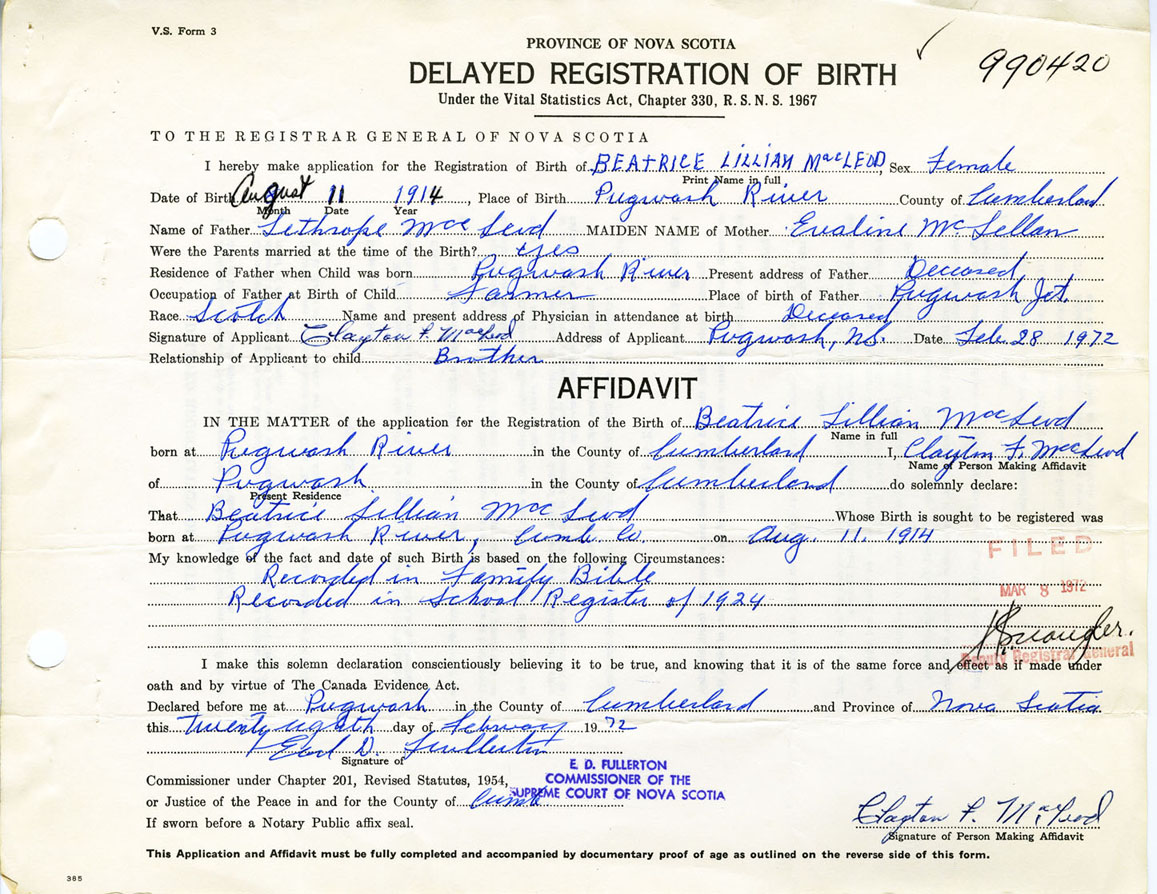 V.S. Form 3
PROVINCE OF NOVA SCOTIA
990420
DELAYED REGISTRATION OF BIRTH
Under the Vital Statistics Act, Chapter 330, R. S. N. S. 1967
TO THE REGISTRAR GENERAL OF NOVA SCOTIA
I hereby make application for the Registration of Birth of BEATRICE LILLIAN MacLEOD, Sex Female
Print Name in full
Date of Birth August 11 1914, Place of Birth Pugwash River County of Cumberland
Month Date Year
Name of Father Lethrope MacLeod MAIDEN NAME of Mother Evaline McLellan
Were the Parents married at the time of the Birth? yes
Residence of Father when Child was born Pugwash River Present address of Father Deceased
Occupation of Father at Birth of Child Farmer Place of birth of Father Pugwash Jct.
Race Scotch Name and present address of Physician in attendance at birth Deceased
Signature of Applicant Clayton F. MacLeod Address of Applicant Pugwash, NS. Date Feb. 28 1972
Relationship of Applicant to child Brother
AFFIDAVIT
IN THE MATTER of the application for the Registration of the Birth of Beatrice Lillian MacLeod
Name in full
born at Pugwash River in the County of Cumberland I, Clayton F. MacLeod
Name of Person Making Affidavit
of Pugwash in the County of Cumberland do solemnly declare:
Present Residence
That Beatrice Lillian MacLeod Whose Birth is sought to be registered was
born at Pugwash River, Cumb. Co. on Aug. 11. 1914
FILED
My knowledge of the fact and date of such Birth is based on the following Circumstances:
Recorded in Family Bible
MAR 8 1972
Recorded in School Register of 1924
Deputy Registrar General
I make this solemn declaration conscientiously believing it to be true, and knowing that it is of the same force and effect as if made under
oath and by virtue of The Canada Evidence Act.
Declared before me at Pugwash in the County of Cumberland and Province of Nova Scotia
this twenty eighth day of February 1972
Earl D. Fullerton
Signature of
E. D. FULLERTON
COMMISSIONER OF THE
SUPREME COURT OF NOVA SCOTIA
Commissioner under Chapter 201, Revised Statutes, 1954,
or Justice of the Peace in and for the County of Cumb
If sworn before a Notary Public affix seal.
Clayton F. MacLeod
Signature of Person Making Affidavit
This Application and Affidavit must be fully completed and accompanied by documentary proof of age as outlined on the reverse side of this form.
385